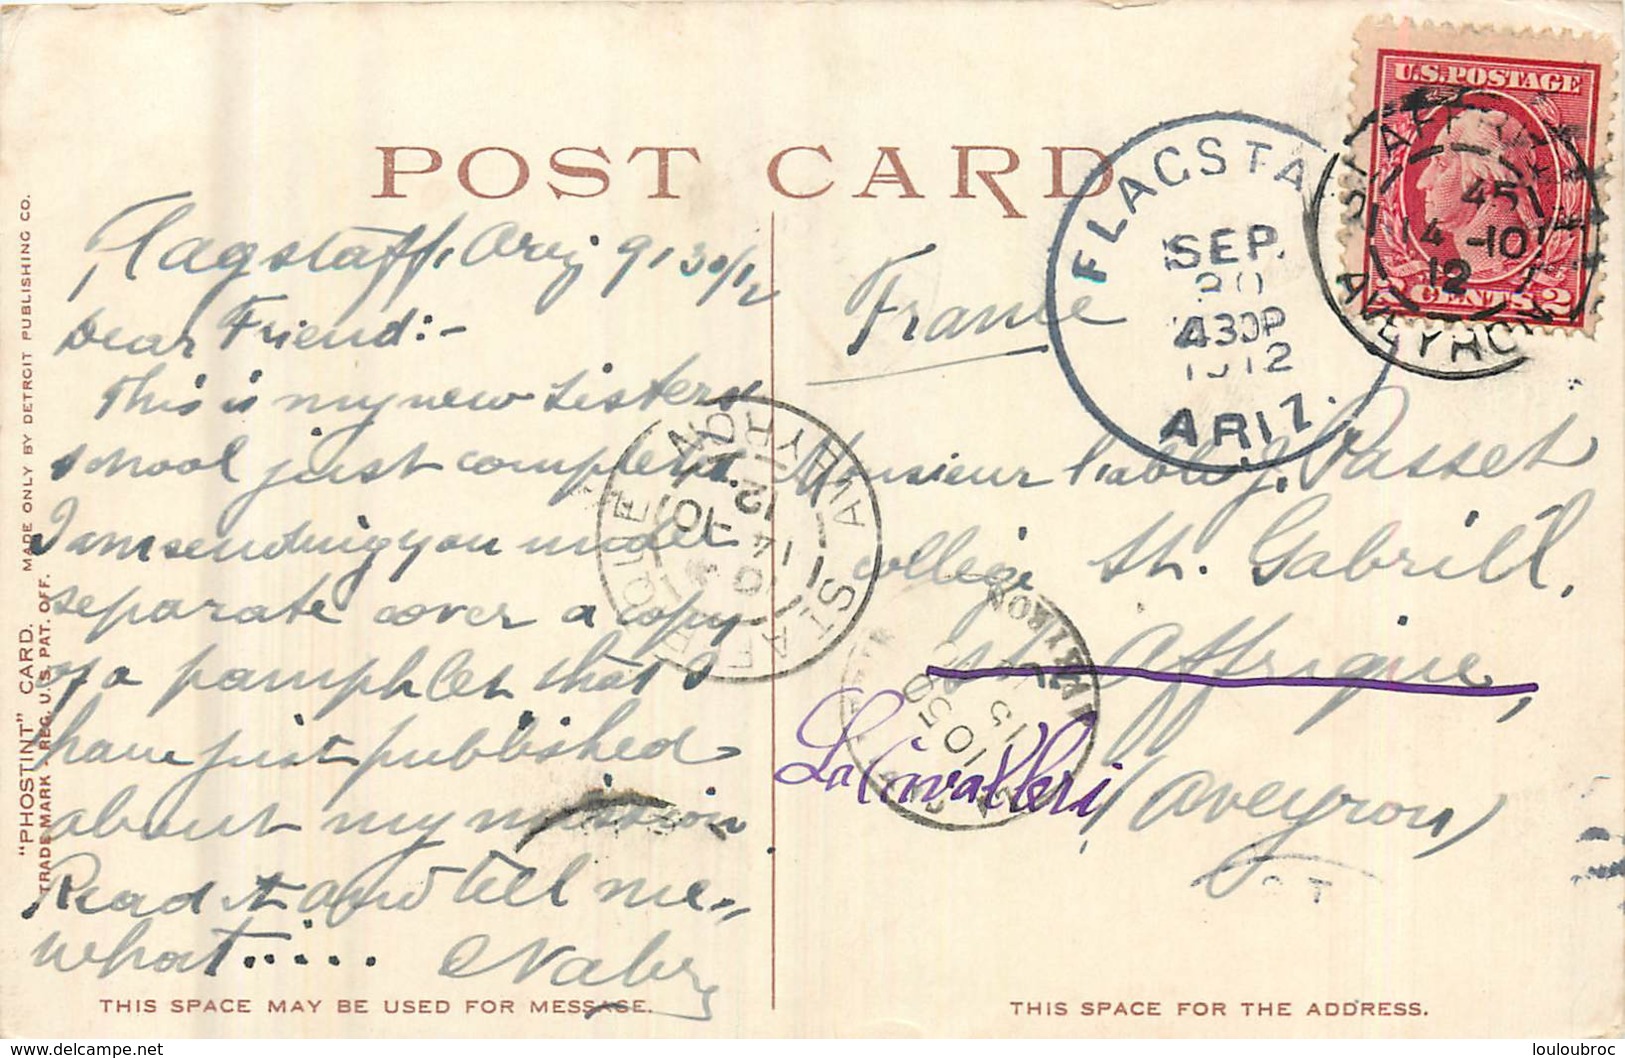 POST CARD
Flagstaff, Ariz 9/30/12
Dear Friend:-
This is my new sisters
school just completed.
I am sending you under
separate cover a copy
of a pamphlet that I
have just published
about my mission
Read it and tell me
what.....
THIS SPACE MAY BE USED FOR MESSAGE.
"PHOSTINT" CARD. MADE ONLY BY DETROIT PUBLISHING CO.
TRADE MARK REG. U.S. PAT. OFF.
France
Monsieur l'abbé J. Passet
college St. Gabriel,
St. Affrique,
La Cavalleri
(Aveyron)
THIS SPACE FOR THE ADDRESS.
FLAGSTA
SEP.
30
430P
1912
ARIZ.
U.S. POSTAGE
2 CENTS 2
ST AFFRIQUE
45
14 -10
12
AVEYRON
ST AFFRIQUE
14 -10
12
AVEYRON
1050
15
AVEYRON
louloubroc